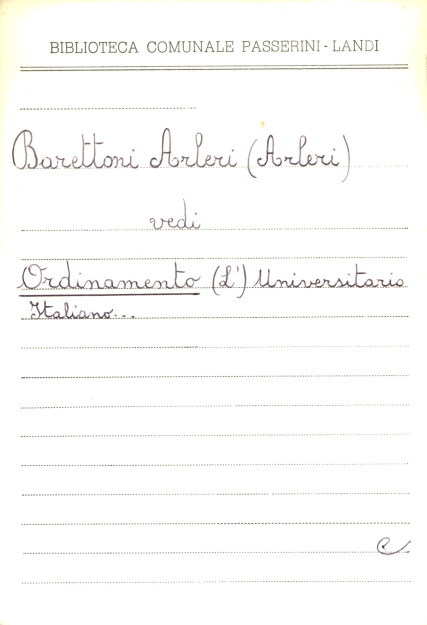 BIBLIOTECA COMUNALE PASSERINI-LANDI
Barettoni Arleri (Arleri)
vedi
Ordinamento (L') Universitario
Italiano...
C